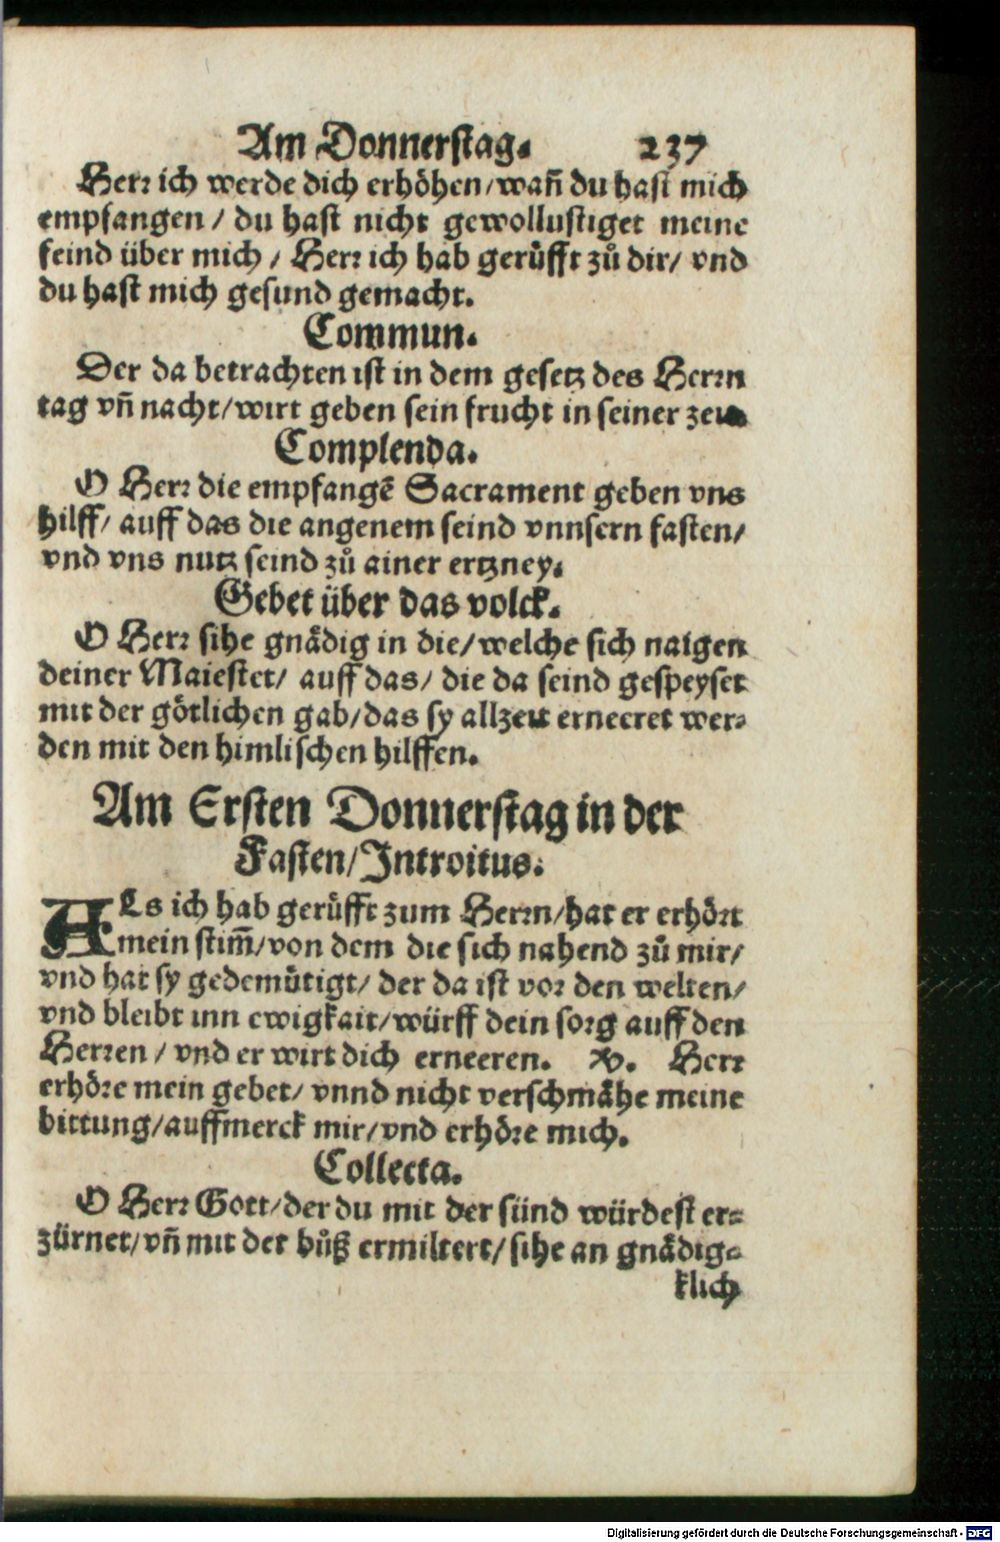 Am Donnerstag. 237
Herr ich werde dich erhöhen/wañ du hast mich
empfangen / du hast nicht gewollustiget meine
feind über mich / Herr ich hab gerüfft zů dir/ vnd
du hast mich gesund gemacht.
Commun.
Der da betrachten ist in dem gesetz des Herrn
tag vñ nacht/wirt geben sein frucht in seiner zeit.
Complenda.
O Herr die empfangē Sacrament geben vns
hilff/ auff das die angenem seind vnnsern fasten/
vnd vns nutz seind zů ainer ertzney.
Gebet über das volck.
O Herr sihe gnådig in die/welche sich naigen
deiner Maiestet/ auff das/ die da seind gespeyset
mit der götlichen gab/das sy allzeit erneeret wer-
den mit den himlischen hilffen.
Am Ersten Donnerstag in der
Fasten/Introitus.
ALs ich hab gerüfft zum Herrn/hat er erhört
mein stim̃/von dem die sich nahend zů mir/
vnd hat sy gedemütigt/ der da ist vor den welten/
vnd bleibt inn ewigkait/würff dein sorg auff den
Herren / vnd er wirt dich erneeren. V. Herr
erhöre mein gebet/ vnnd nicht verschmåhe meine
bittung/auffmerck mir/vnd erhöre mich.
Collecta.
O Herr Gott/der du mit der sünd würdest er-
zürnet/vñ mit der bůß ermiltert/sihe an gnådig-
klich
Digitalisierung gefördert durch die Deutsche Forschungsgemeinschaft - DFG